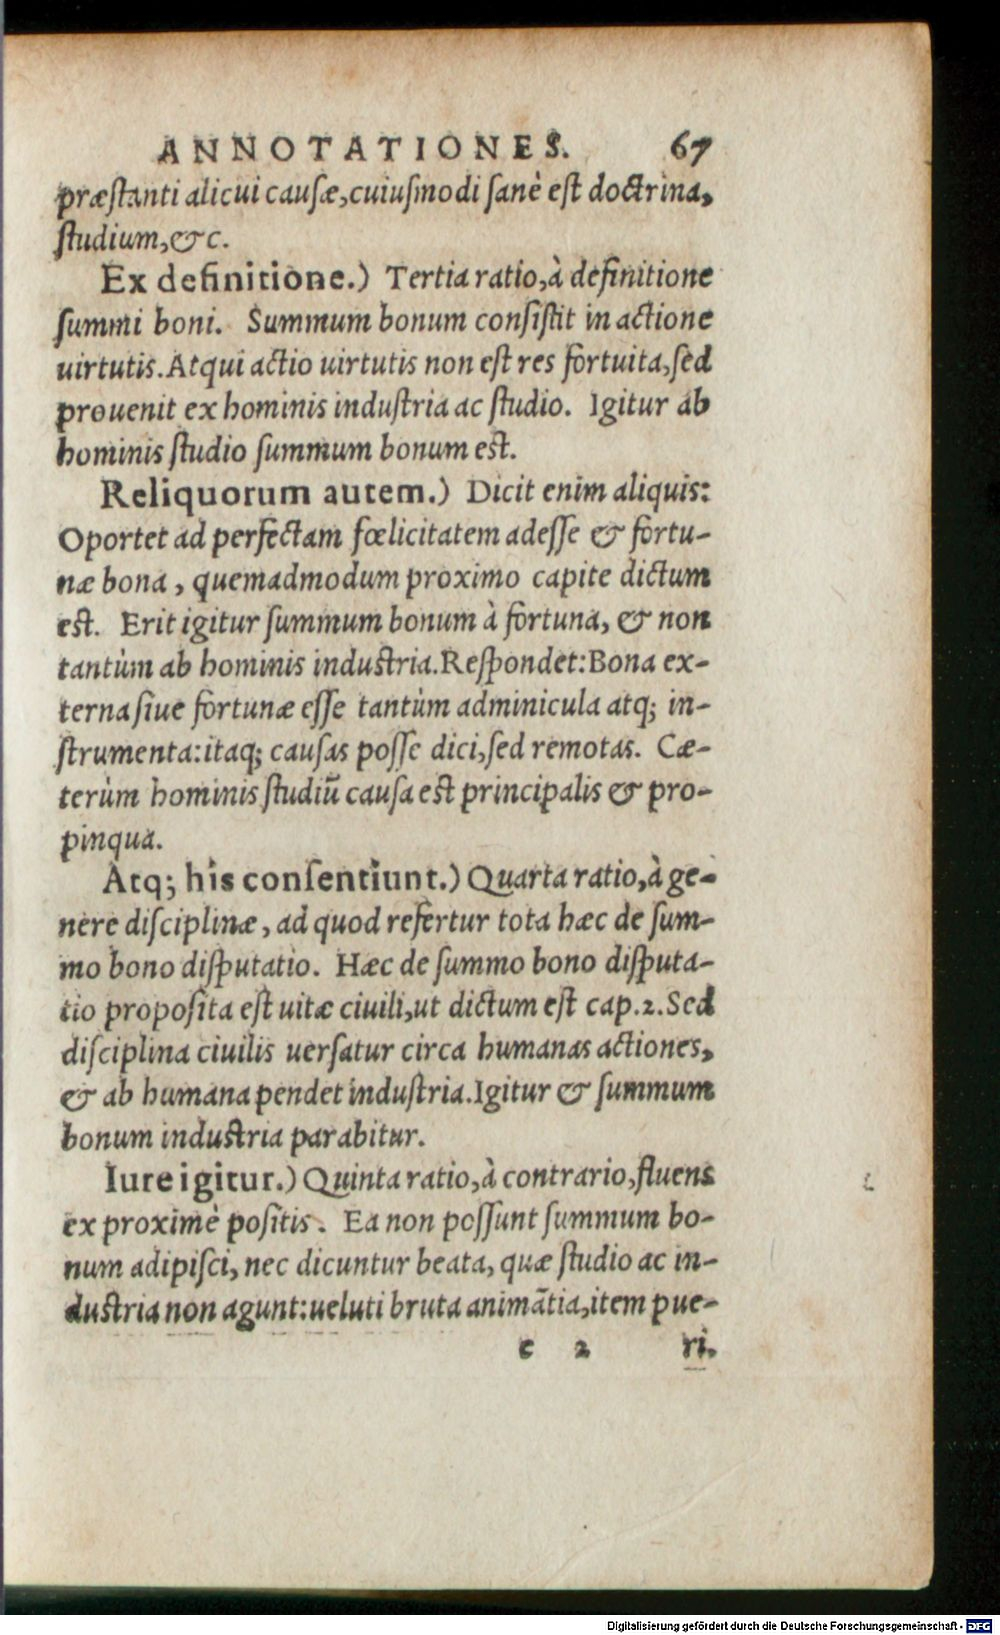 ANNOTATIONES. 67
præstanti alicui causæ, cuiusmodi sanè est doctrina,
studium, &c.
Ex definitione.) Tertia ratio, à definitione
summi boni. Summum bonum consistit in actione
uirtutis. Atqui actio uirtutis non est res fortuita, sed
prouenit ex hominis industria ac studio. Igitur ab
hominis studio summum bonum est.
Reliquorum autem.) Dicit enim aliquis:
Oportet ad perfectam fœlicitatem adesse & fortu-
næ bona, quemadmodum proximo capite dictum
est. Erit igitur summum bonum à fortuna, & non
tantùm ab hominis industria. Respondet: Bona ex-
terna siue fortunæ esse tantùm adminicula atq; in-
strumenta: itaq; causas posse dici, sed remotas. Cæ-
terùm hominis studiũ causa est principalis & pro-
pinqua.
Atq; his consentiunt.) Quarta ratio, à ge-
nere disciplinæ, ad quod refertur tota hæc de sum-
mo bono disputatio. Hæc de summo bono disputa-
tio proposita est uitæ ciuili, ut dictum est cap. 2. Sed
disciplina ciuilis uersatur circa humanas actiones,
& ab humana pendet industria. Igitur & summum
bonum industria parabitur.
Iure igitur.) Quinta ratio, à contrario, fluens
ex proximè positis. Ea non possunt summum bo-
num adipisci, nec dicuntur beata, quæ studio ac in-
dustria non agunt: ueluti bruta animãtia, item pue-
c 2 ri.
Digitalisierung gefördert durch die Deutsche Forschungsgemeinschaft - DFG